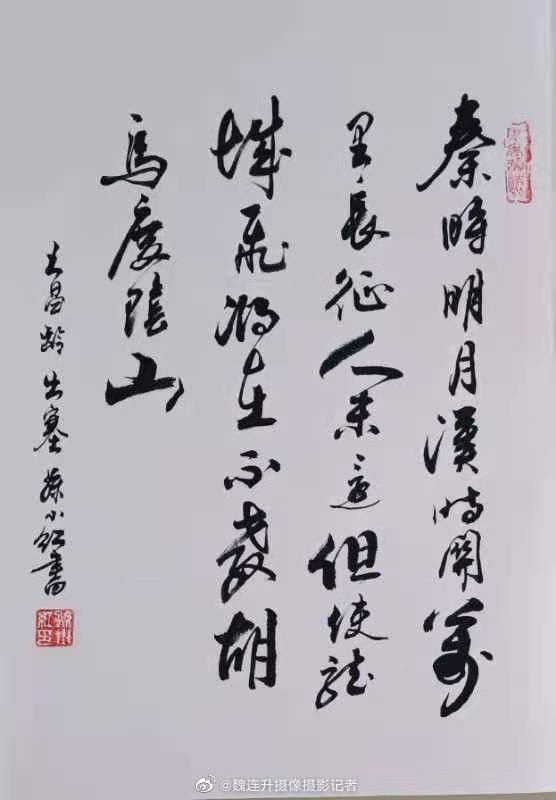 秦時明月漢時關萬
里長征人未還但使龍
城飛將在不教胡
馬度陰山
王昌齡出塞 小紅書
@魏连升摄像摄影记者